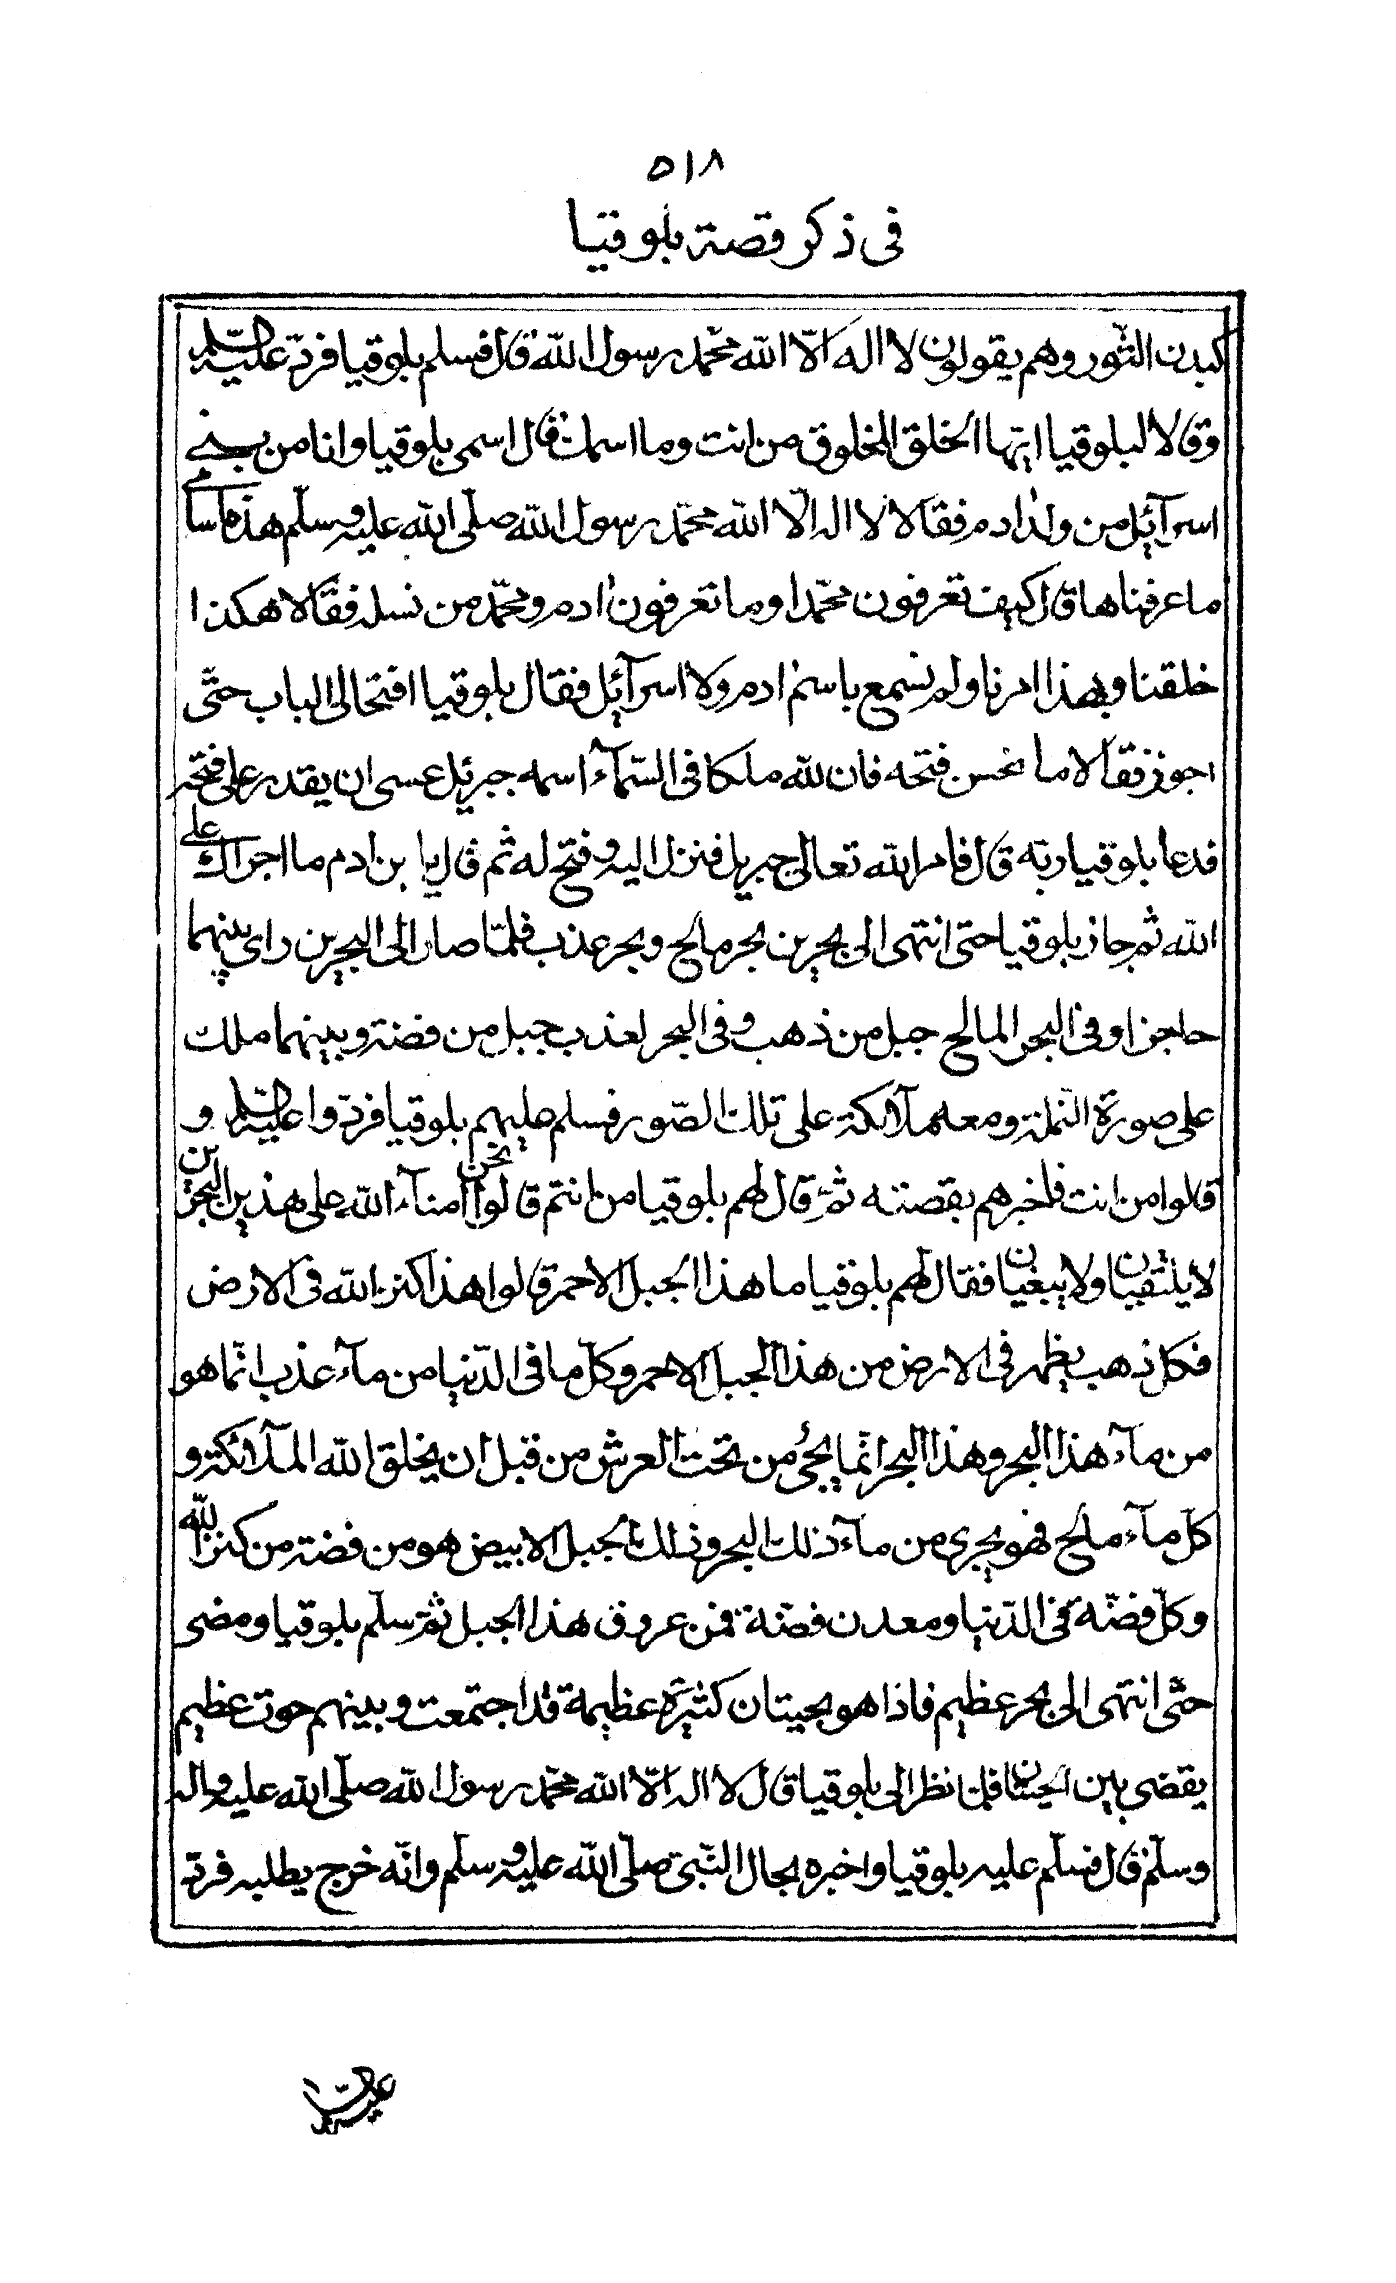 ٥١٨
فى ذكر قصة بلوقيا
كبدن الثور وهم يقولون لا اله الّا الله محمّد رسول الله قال فسلم بلوقيا فردّ عليه السّلم
وقالا لبلوقيا ايّها الخلق المخلوق من انت وما اسمك فقال اسمى بلوقيا وانا من بنى
اسرآئيل من ولد ادم فقالا لا اله الّا الله محمّد رسول الله صلّى الله عليه وسلّم هذه اسامى
ما عرفناها قال كيف تعرفون محمّدا وما تعرفون ادم ومحمّد من نسله فقالا هكذا
خلقنا وبهذا امرنا ولم نسمع باسم ادم ولا اسرآئيل فقال بلوقيا افتحا لى الباب حتّى
اجوز فقالا ما نحسن فتحه فان لله ملكا فى السّمآء اسمه جبرئيل عسى ان يقدر على فتحه
فدعا بلوقيا ربّه قال فامر الله تعالى جبريل فنزل اليه وفتح له ثم قال يا بن ادم ما اجراك على
الله ثم جاز بلوقيا حتى انتهى الى بحرين بحر مالح وبحر عذب فلمّا صار الى البحرين راى بينهما
حاجزا وفى البحر المالح جبل من ذهب وفى البحر لعذب جبل من فضة وبينهما ملك
على صورة النّملة ومعه ملآئكة على تلك الصّور فسلم عليهم بلوقيا فردّوا عليه السّلم و
قالوا من انت فاخبرهم بقصته ثمّ قال لهم بلوقيا من انتم قالوا نحن امنآء الله على هذين البحرين
لا يلتقيان ولا يبغيان فقال لهم بلوقيا ما هذا الجبل الاحمر قالوا هذا كنز الله فى الارض
فكل ذهب يظهر فى الارض من هذا الجبل الاحمر وكلّ ما فى الدّنيا من مآء عذب انّما هو
من مآء هذا البحر وهذا البحر انّما يجئ من تحت العرش من قبل ان يخلق الله الملآئكة و
كلّ مآء مالح فهو يجرى من مآء ذلك البحر وذلك الجبل الابيض هو من فضة من كنز الله
وكلّ فضّة فى الدّنيا ومعدن فضّة فمن عروق هذا الجبل ثمّ سلّم بلوقيا ومضى
حتّى انتهى الى بحر عظيم فاذا هو بحيتان كثيرة عظيمة قد اجتمعت وبينهم حوت عظيم
يقضى بين الحيتان فلما نظر الى بلوقيا قال لا اله الّا الله محمّد رسول الله صلّى الله عليه واله
وسلّم قال فسلّم عليه بلوقيا واخبره بحال النّبىّ صلّى الله عليه وسلّم وانّه خرج يطلبه فردّ
عليه السّلم